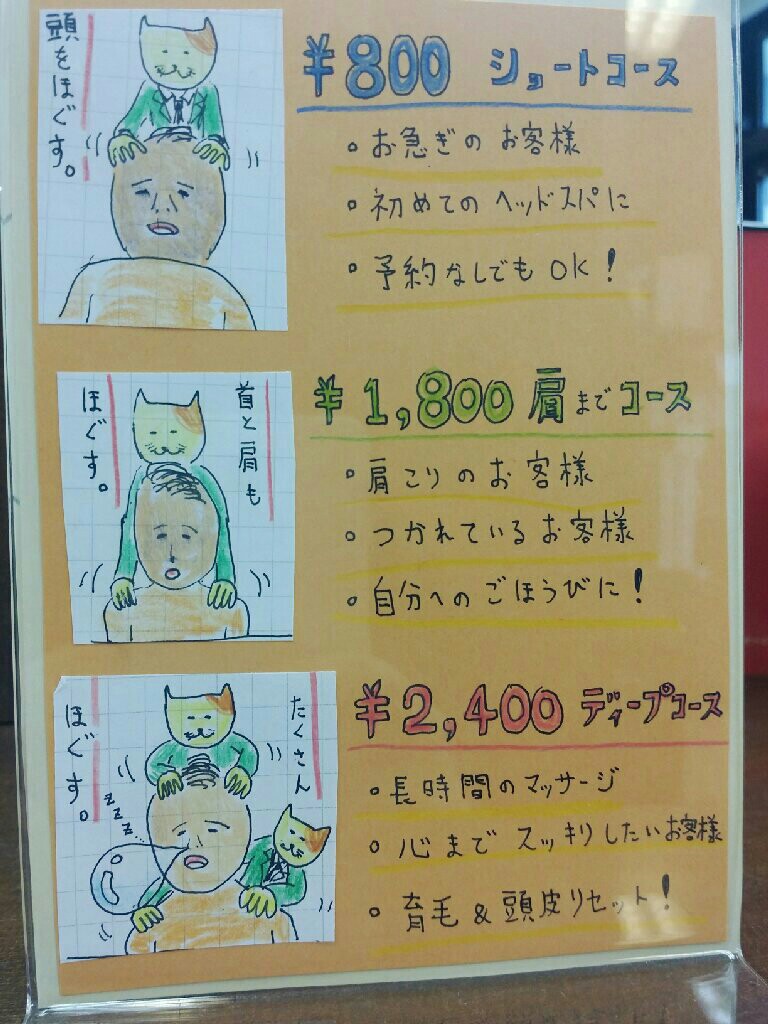 頭をほぐす。
¥800 ショートコース
・お急ぎのお客様
・初めてのヘッドスパに
・予約なしでもOK!
首と肩も
ほぐす。
¥1,800 肩までコース
・肩こりのお客様
・つかれているお客様
・自分へのごほうびに!
たくさん
ほぐす。
zzz
¥2,400 ディープコース
・長時間のマッサージ
・心までスッキリしたいお客様
・育毛&頭皮リセット!